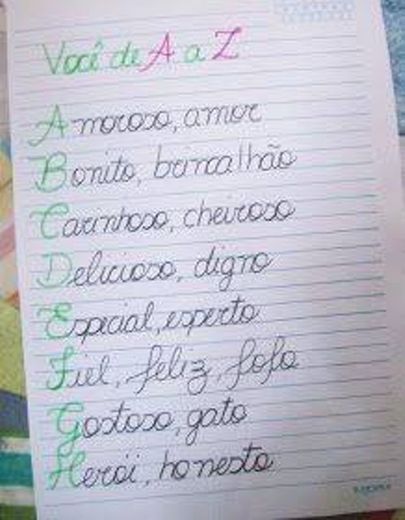 Você de A a Z
Amoroso, amor
Bonito, brincalhão
Carinhoso, cheiroso
Delicioso, digno
Especial, esperto
Fiel, feliz, fofo
Gostoso, gato
Herói, honesto